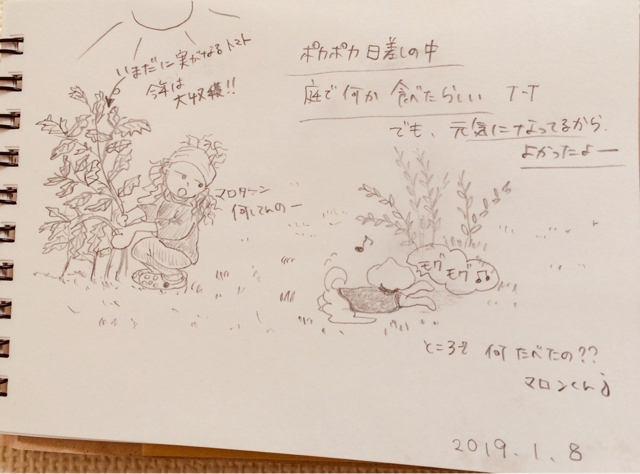 いまだに実がなるトマト
今年は
大収穫!!
ポカポカ日差しの中
庭で何か食べたらしい T-T
でも、元気になってるから
よかったよー
マロターン
何してんのー
モグ
モグ
ところで 何たべたの??
マロンくん
2019.1.8